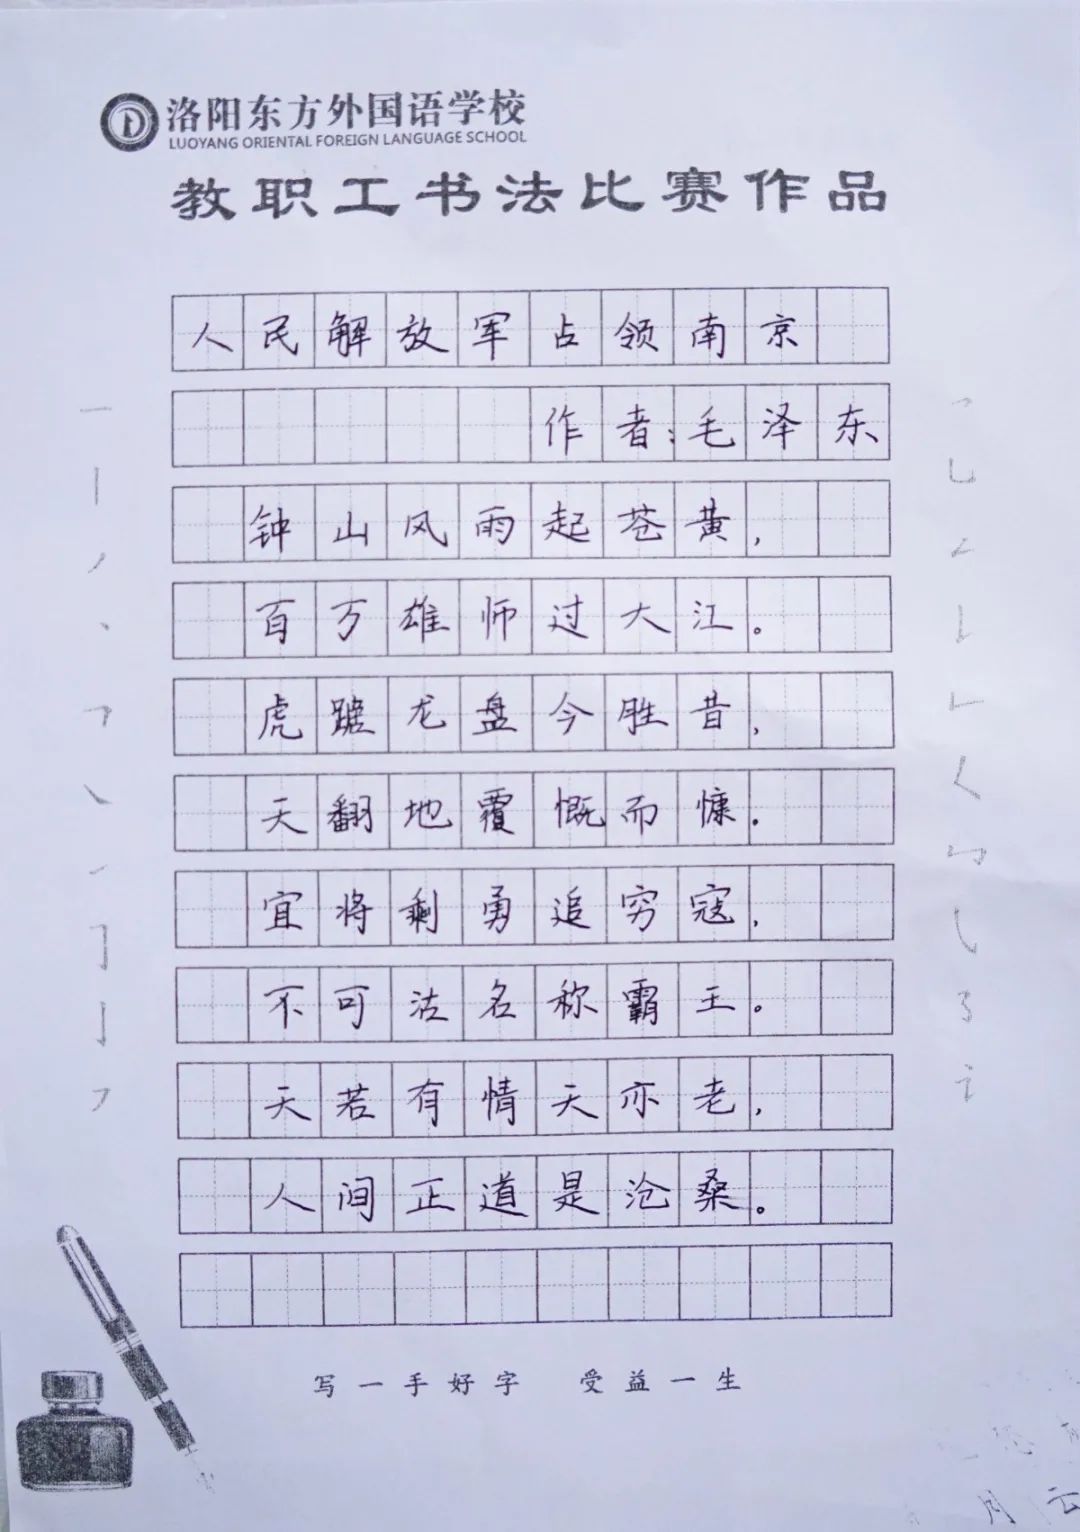 洛阳东方外国语学校
LUOYANG ORIENTAL FOREIGN LANGUAGE SCHOOL
教职工书法比赛作品
人民解放军占领南京
作者:毛泽东
钟山风雨起苍黄,
百万雄师过大江。
虎踞龙盘今胜昔,
天翻地覆慨而慷.
宜将剩勇追穷寇,
不可沽名称霸王。
天若有情天亦老,
人间正道是沧桑。
写一手好字 受益一生